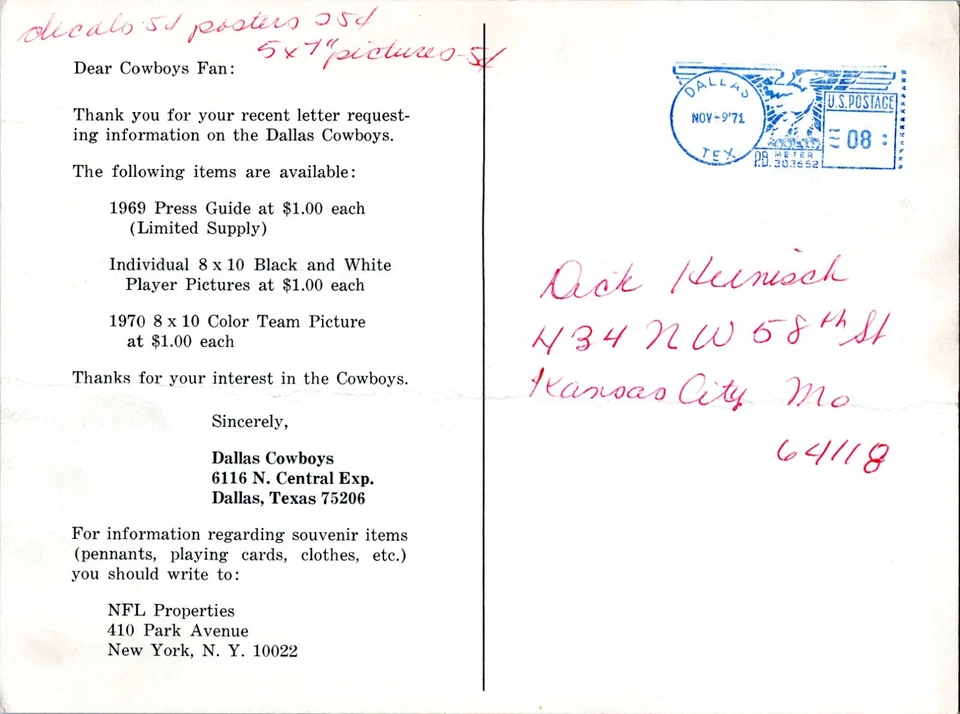 decals 5¢ posters 25¢
5 x 7" pictures - 5¢
Dear Cowboys Fan:
Thank you for your recent letter request-
ing information on the Dallas Cowboys.
The following items are available:
1969 Press Guide at $1.00 each
(Limited Supply)
Individual 8 x 10 Black and White
Player Pictures at $1.00 each
1970 8 x 10 Color Team Picture
at $1.00 each
Thanks for your interest in the Cowboys.
Sincerely,
Dallas Cowboys
6116 N. Central Exp.
Dallas, Texas 75206
For information regarding souvenir items
(pennants, playing cards, clothes, etc.)
you should write to:
NFL Properties
410 Park Avenue
New York, N. Y. 10022
DALLAS
NOV-9'71
TEX.
U.S. POSTAGE
08
P.B. METER
Dick Heinisch
434 NW 58th St
Kansas City Mo
64118